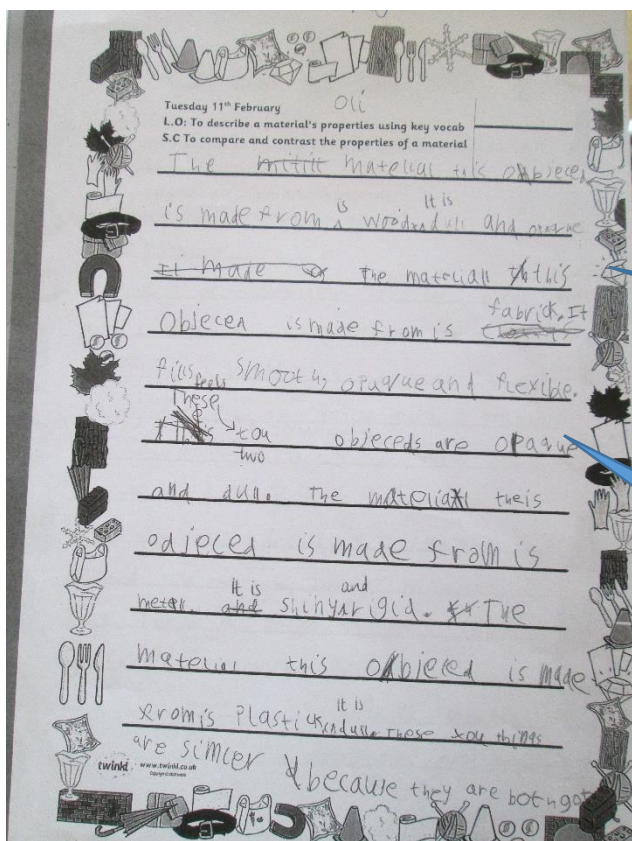 Oli
Tuesday 11th February
L.O: To describe a material's properties using key vocab
S.C To compare and contrast the properties of a material
The material this objeced
is made from is wood It is dull and opaque
It made The material this
objeced is made from is fabrick. It
fills feels smooth, opaque and flexible.
These
tou objeceds are opaque
two
and dull. The material theis
odjeced is made from is
It is and
metel. and shiny rigid. The
material this objeced is made
from is Plastick It is and dull. These tou things
are simler because they are both got
twinkl www.twinkl.co.uk